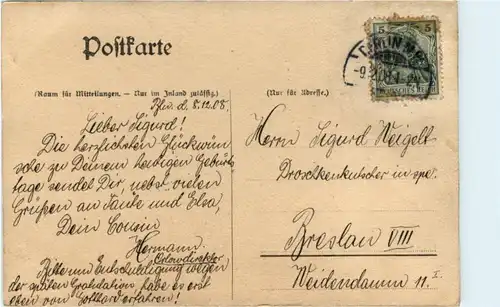 Postkarte
(Raum für Mitteilungen. — Nur im Inland zulässig.)
(Nur für Adresse.)
5 5
BERLIN
Bln. d. 8.12.08.
Lieber Sigurd!
Die herzlichsten Glückwün
sche zu Deinem heutigen Geburts
tage sendet Dir, nebst vielen
Grüßen an Tante und Elsa,
Dein Cousin
Hermann
Bitte um Entschuldigung wegen
der späten Gratulation, habe es erst
eben von Gotthard erfahren!
Herrn Sigurd Weigelt
Droschkenkutscher in spe.
Breslau VIII
Weidendamm 11 I.